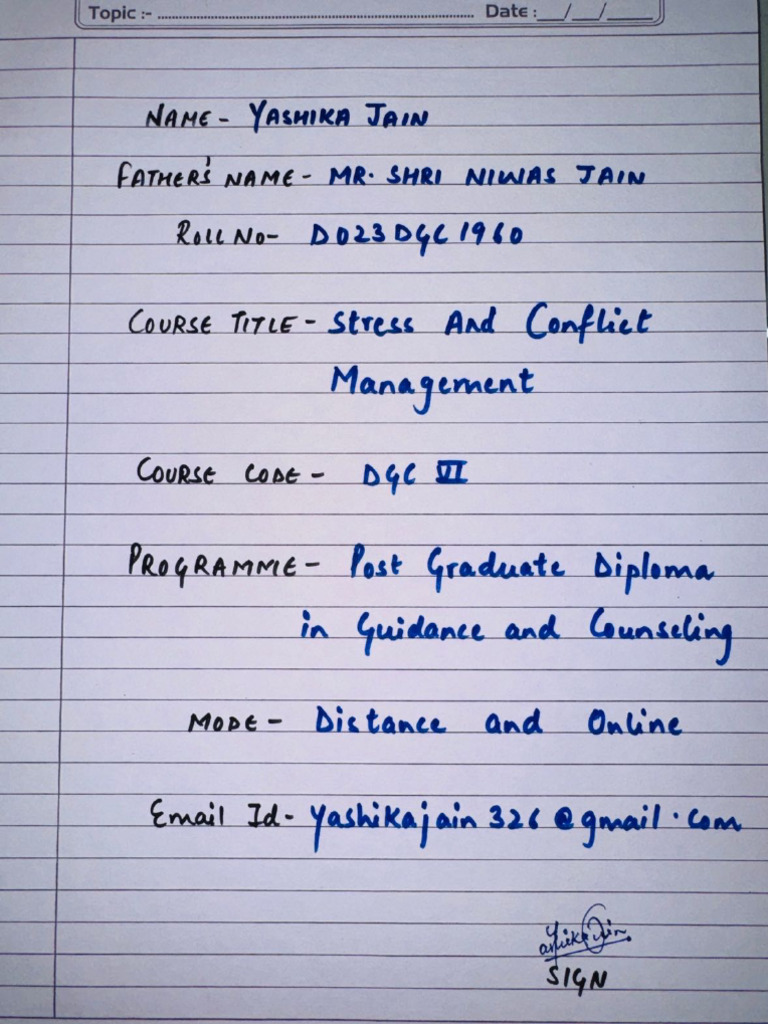 Topic :- ........................................ Date :__/__/____
NAME - YASHIKA JAIN
FATHER'S NAME - MR. SHRI NIWAS JAIN
ROLL NO- D023DGC1960
COURSE TITLE - Stress And Conflict
Management
COURSE CODE - DGC VI
PROGRAMME - Post Graduate Diploma
in Guidance and Counseling
MODE - Distance and Online
Email Id- yashikajain326@gmail.com
Yashika Jain
SIGN